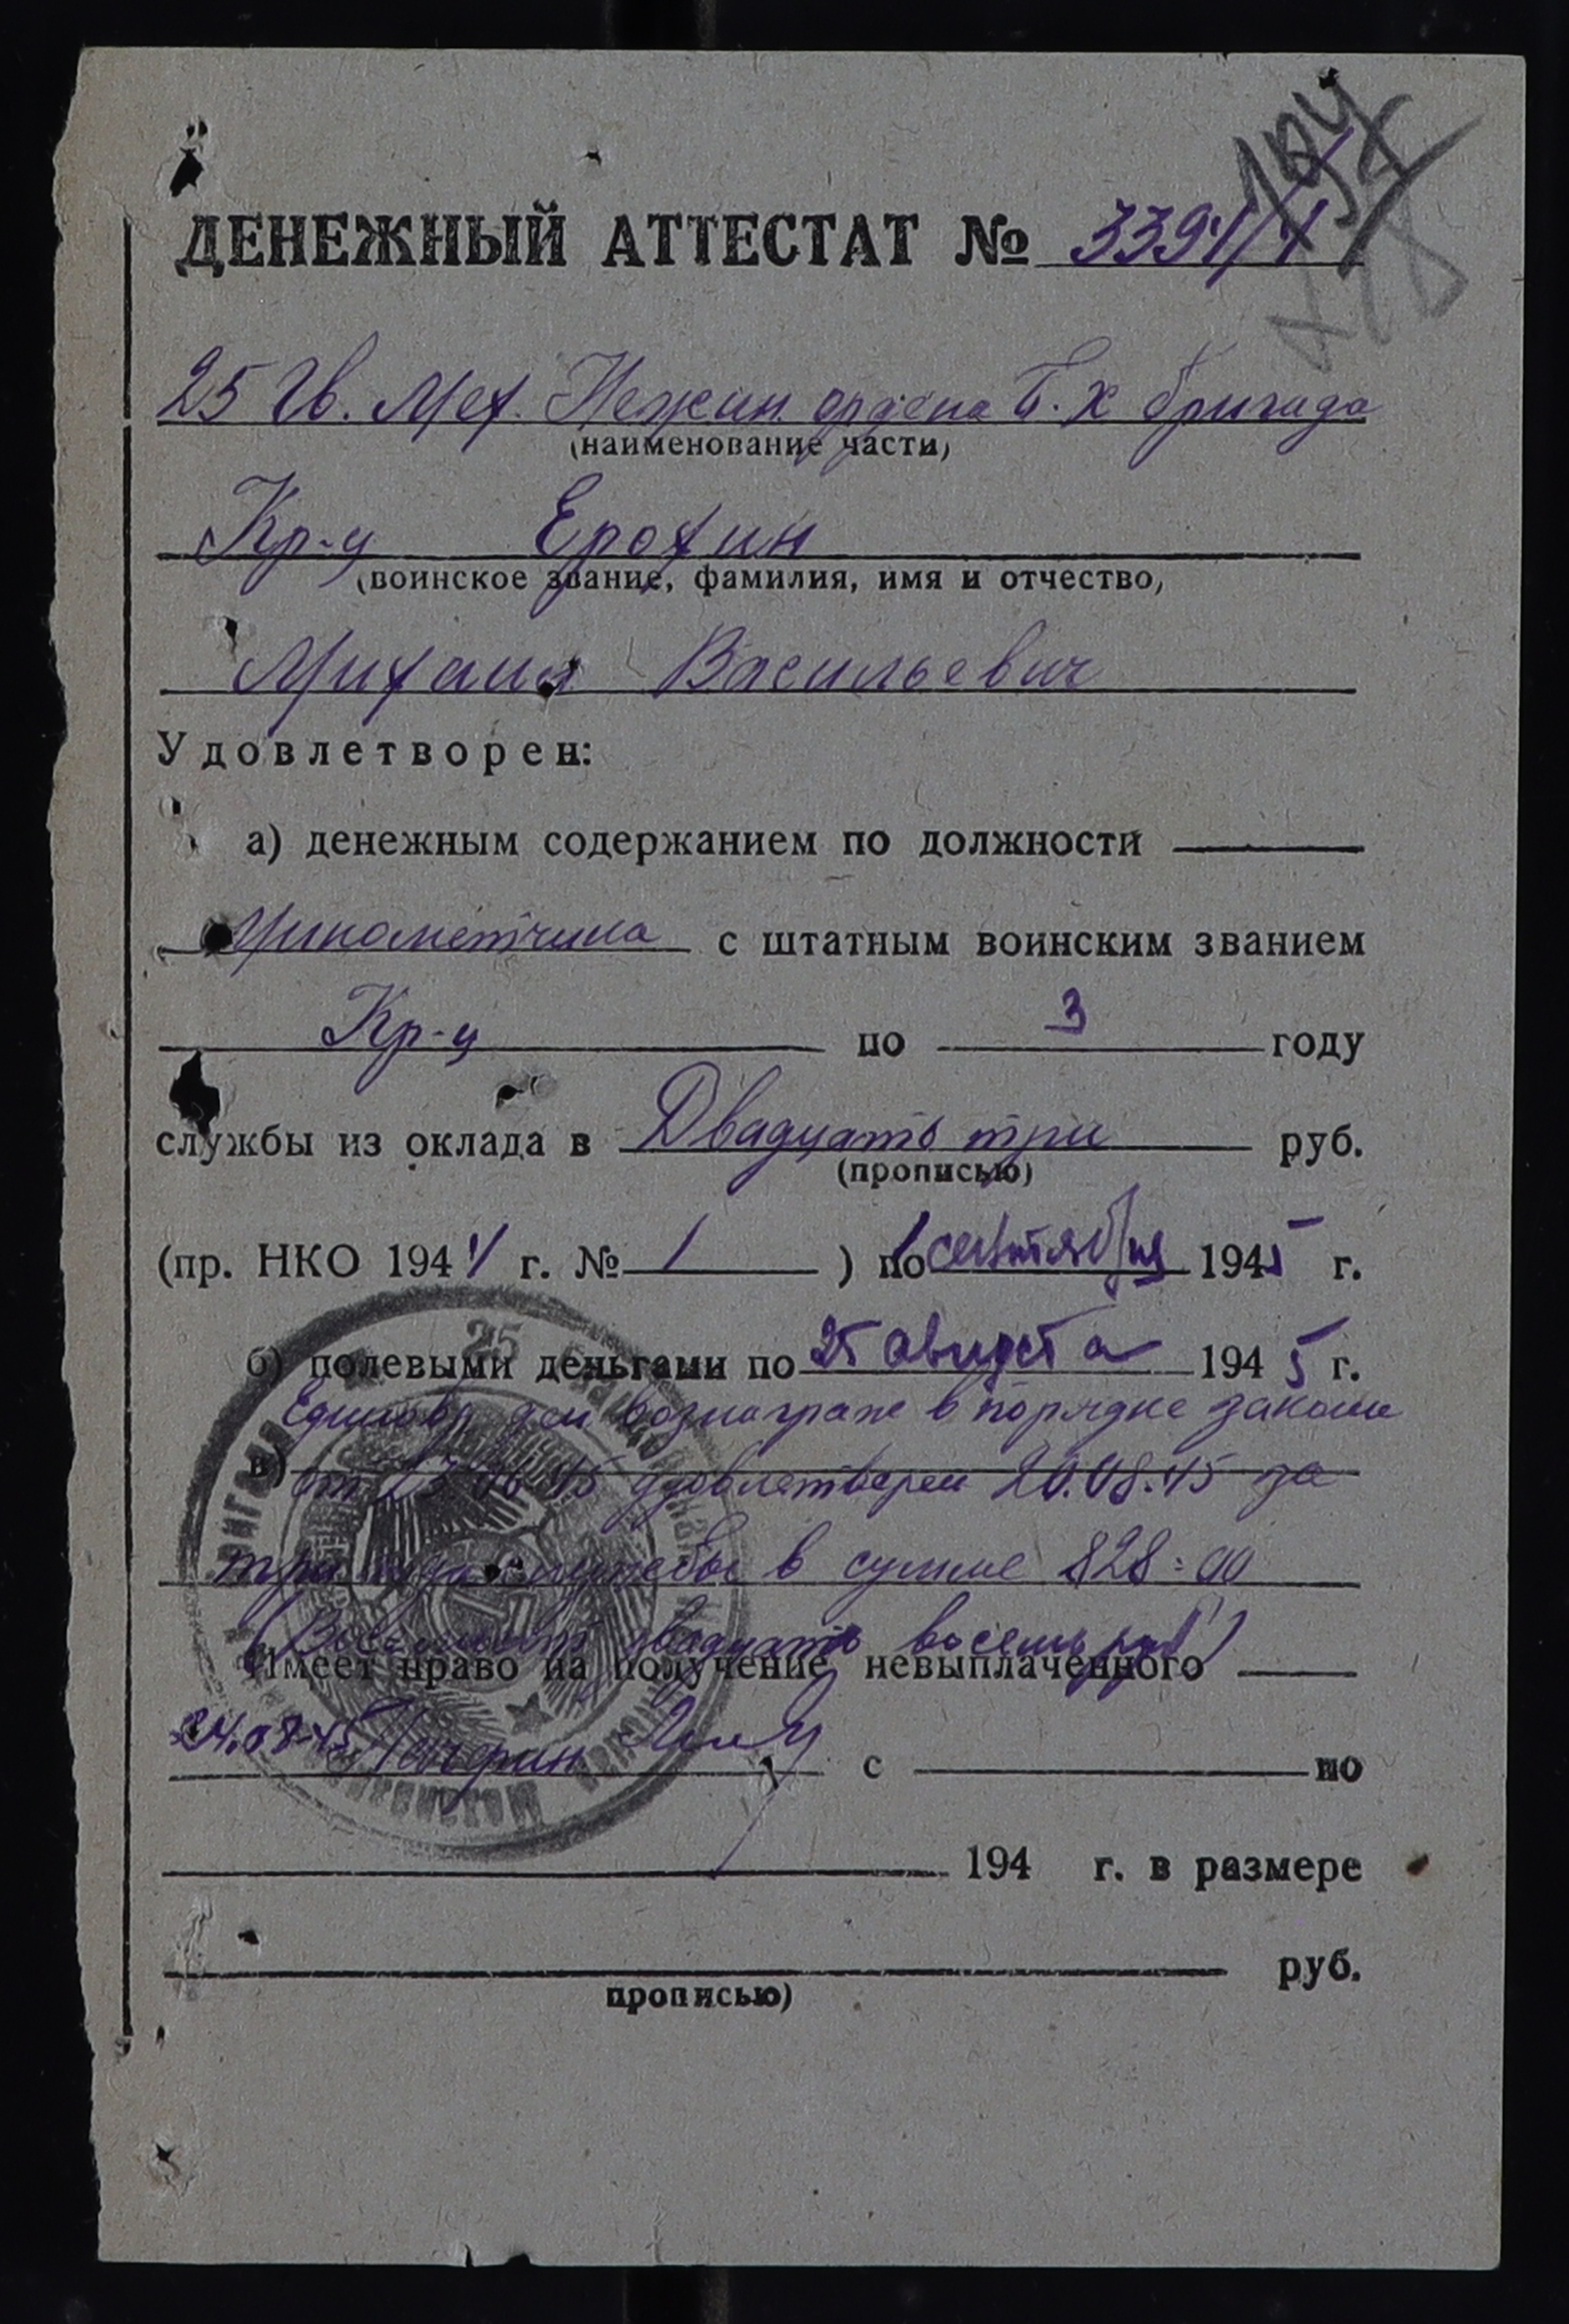 ДЕНЕЖНЫЙ АТТЕСТАТ № 3391/1
25 Гв. Мех. Нежин. ордена Б.Х бригада
(наименование части)
Кр-ц Ерохин
(воинское звание, фамилия, имя и отчество)
Михаил Васильевич
Удовлетворен:
а) денежным содержанием по должности
минометчика с штатным воинским званием
Кр-ц по 3 году
службы из оклада в Двадцать три руб.
(прописью)
(пр. НКО 1944 г. № 1 ) по 1 сентября 1945 г.
б) полевыми деньгами по 25 августа 1945 г.
Единовр ден вознаграж в порядке закона
в) от 23 06 45 удовлетворен 20.08.45 за
три года службы в сумме 828=00
(Восемьсот двадцать восемь руб)
Имеет право на получение невыплаченного
24.08.45 с по
194 г. в размере
руб.
прописью)